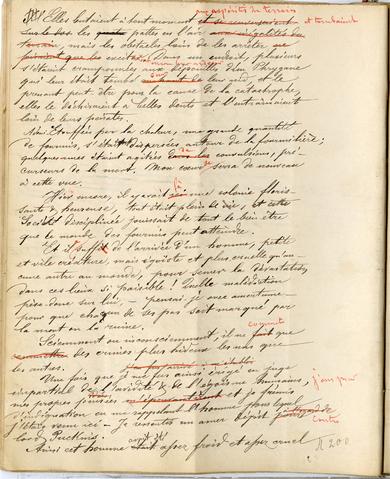 aux aspérités du terrain
Elles butaient à tout moment et se et tombaient
sur le dos les pattes en l'air aux inégalités du
terrain, mais les obstacles loin de les arrêter ne
que les exciter. Dans un endroit, plusieurs
s'étaient cramponnées aux dépouilles de
qui leur était tombé sur leur nid, et le
prenant peut être pour la cause de la catastrophe,
elles le déchiraient à belles dents et l'entraînaient
loin de leurs pénates.
étouffées par la chaleur, une grande quantité
de fourmis, s'était dispersées autour de la fourmilière;
quelques unes étaient agitées de convulsions, pré-
curseurs de la mort. Mon cœur se serra de nouveau
à cette vue.
Hier encore, il y avait là une colonie floris-
sante & heureuse, tout était plein de vie, et cette
Société disciplinée jouissait de tout le bien être
que le monde des fourmis peut atteindre.
Et il suffit de l'arrivée d'un homme, petite
et vile créature, mais égoïste et plus cruelle qu'au-
cune autre au monde, pour semer la dévastation
dans ces lieux si paisible! Quelle malédiction
pèse donc sur lui, - pensai je avec amertume -
pour que chacun de ses pas soit marqué par
la mort ou la ruine.
commet
Sciemment ou inconsciemment, il ne fait que
des crimes plus hideux les uns que
les autres.
Une fois que je me fus ainsi érigé en juge
impartial de l'avidité & de l'égoïsme humains, j'ai
mes propres pensées et je frémis
d'indignation en me rappelant l'homme pour lequel
j'étais venu ici - Je ressentis un amer dépit contre
Lord
Ainsi cet homme avait été assez froid et assez cruel
200